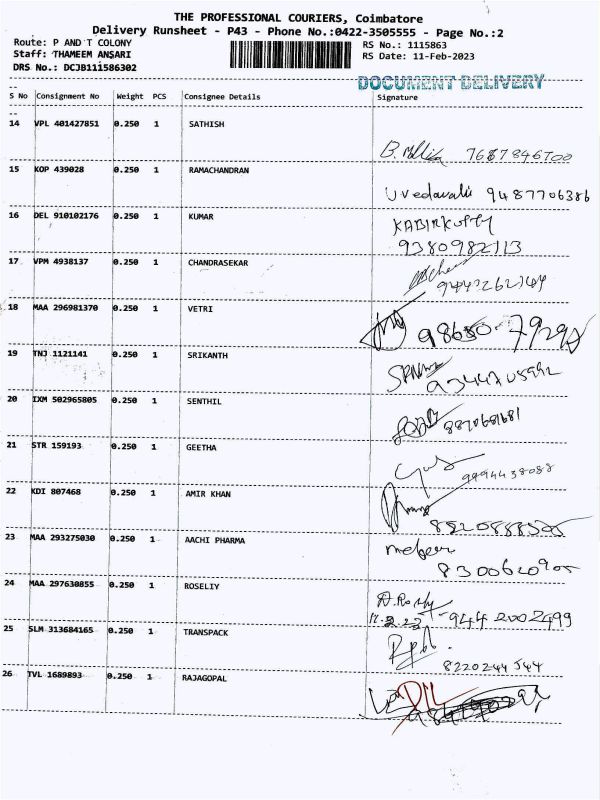 THE PROFESSIONAL COURIERS, Coimbatore
Delivery Runsheet - P43 - Phone No.:0422-3505555 - Page No.:2
Route: P AND T COLONY RS No.: 1115863
Staff: THAMEEM ANSARI RS Date: 11-Feb-2023
DRS No.: DCJB111586302
DOCUMENT DELIVERY
S No Consignment No Weight PCS Consignee Details Signature
14 VPL 401427851 0.250 1 SATHISH
7687846700
15 KOP 439028 0.250 1 RAMACHANDRAN
Uvedavalli 9487706386
16 DEL 910102176 0.250 1 KUMAR
KABIRKUTTY
9380982113
17 VPM 4938137 0.250 1 CHANDRASEKAR
18 MAA 296981370 0.250 1 VETRI
19 TNJ 1121141 0.250 1 SRIKANTH
20 IXM 502965805 0.250 1 SENTHIL
8870681681
21 STR 159193 0.250 1 GEETHA
9994438088
22 KDI 807468 0.250 1 AMIR KHAN
23 MAA 293275030 0.250 1 AACHI PHARMA
24 MAA 297630855 0.250 1 ROSELIY
9442002499
25 SLM 313684165 0.250 1 TRANSPACK
8220244544
26 TVL 1689893 0.250 1 RAJAGOPAL